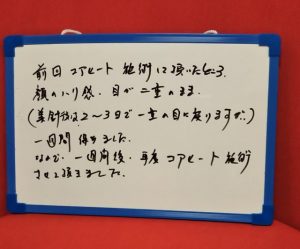 前回 コアヒート 施術して頂いたところ、
顔のハリ感、目が二重のまま
(美顔後は2〜3日で一重の目に戻りますが、)
一週間 保ちました。
なので、一週間後、再度 コアヒート 施術
させて頂きました。